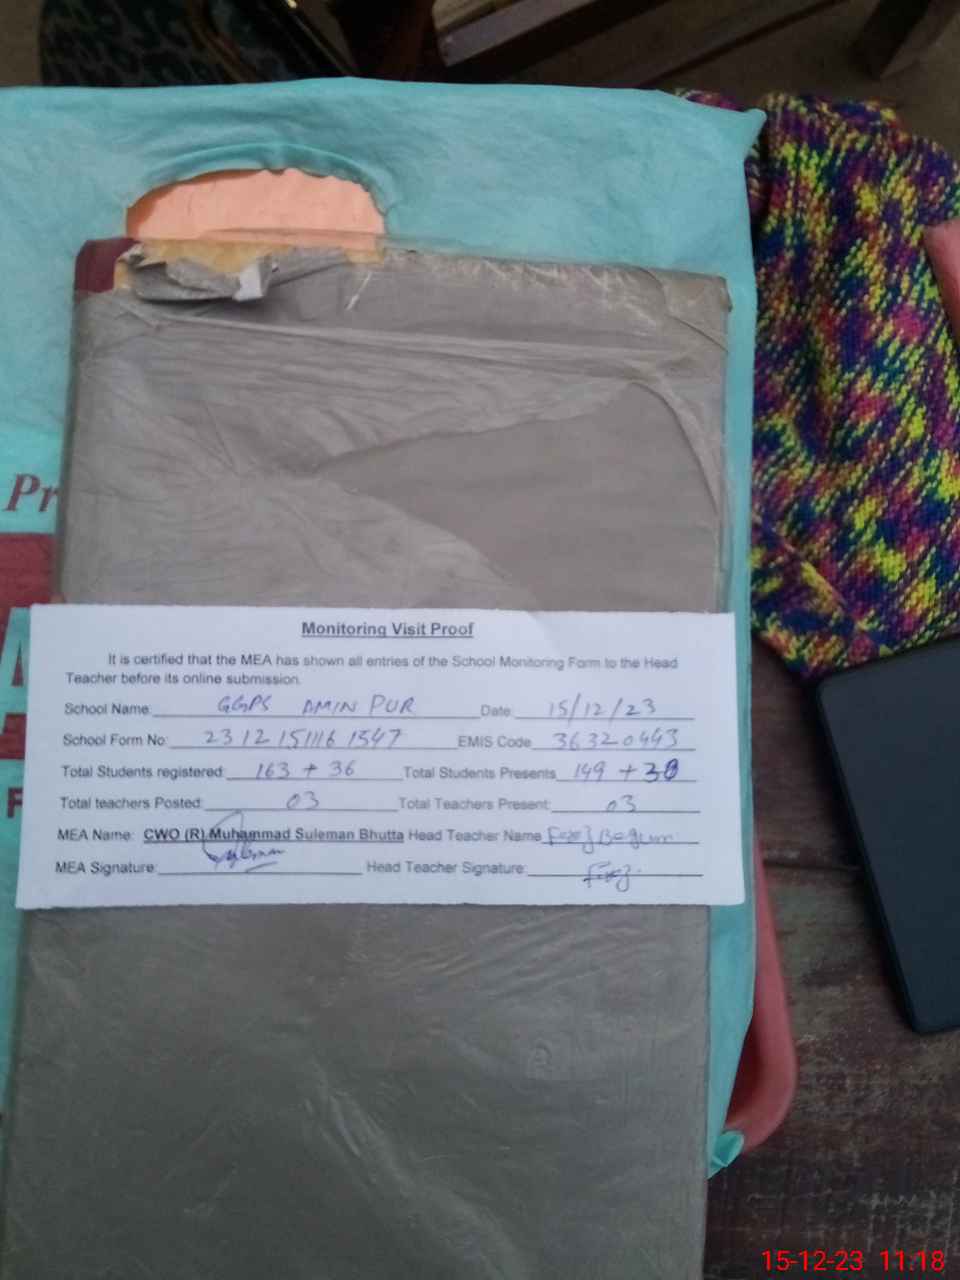 Pr
Monitoring Visit Proof
It is certified that the MEA has shown all entries of the School Monitoring Form to the Head
Teacher before its online submission.
School Name: GGPS AMIN PUR Date: 15/12/23
School Form No: 23121511161347 EMIS Code 36320443
Total Students registered: 163 + 36 Total Students Presents 149 + 30
Total teachers Posted: 03 Total Teachers Present: 03
MEA Name: CWO (R) Muhammad Suleman Bhutta Head Teacher Name Begum
MEA Signature: Head Teacher Signature:
15-12-23 11:18